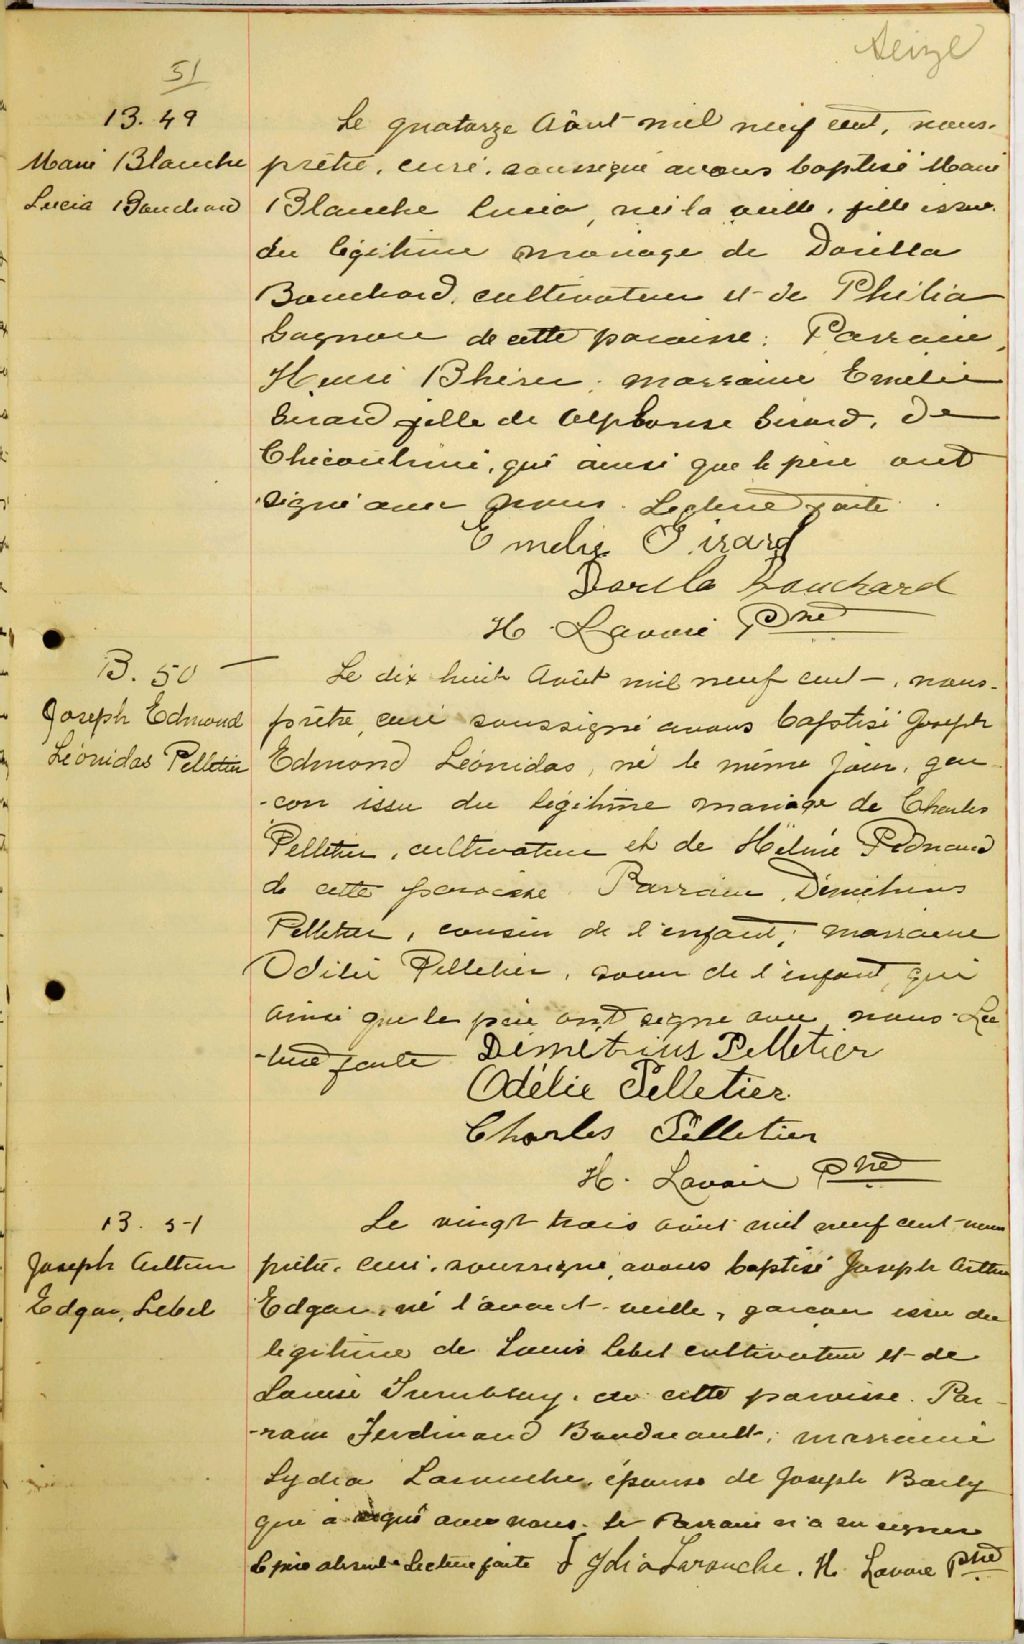 Seize
51
B. 49
Marie Blanche
Lucia Bouchard
Le quatorze Août mil neuf cent, nous
prêtre, curé, soussigné avons baptisé Marie
Blanche Lucia, née la veille, fille issue
du légitime mariage de Dorilla
Bouchard, cultivateur et de Philia
Gagnon de cette paroisse. Parrain,
Henri Bhérer; marraine Emélie
Girard fille de Alphonse Girard, de
Chicoutimi, qui ainsi que le père ont
signé avec nous. Lecture faite.
Emelie Girard
Dorila Bouchard
H. Lavoie Ptre
B. 50
Joseph Edmond
Léonidas Pelletier
Le dix huit Août mil neuf cent, nous
prêtre, curé soussigné avons baptisé Joseph
Edmond Léonidas, né le même jour, gar
-çon issu du légitime mariage de Charles
Pelletier, cultivateur et de Hélène
de cette paroisse. Parrain, Démétrius
Pelletier, cousin de l'enfant; marraine
Odélie Pelletier, soeur de l'enfant, qui
ainsi que le père ont signé avec nous. Lec
-ture faite
Démétrius Pelletier
Odélie Pelletier
Charles Pelletier
H. Lavoie Ptre
B. 51
Joseph Arthur
Edgar, Lebel
Le vingt trois août mil neuf cent nous
prêtre, curé, soussigné, avons baptisé Joseph Arthur
Edgar, né l'avant-veille, garçon issu du
légitime de Louis Lebel cultivateur et de
Louise Tremblay, de cette paroisse. Par
-rain Ferdinand Boudreault; marraine
Lydia Larouche, épouse de Joseph Barly
qui a signé avec nous. Le Parrain n'a su signer
Le père absent Lecture faite Lydia Larouche. H. Lavoie Ptre